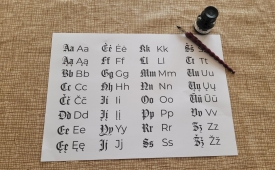 Aa Aa Ėė Ėė Kk Kk Šš
Ąą Ąą Ff Ff Ll Ll Tt Tt
Bb Bb Gg Gg Mm Mm Uu Uu
Cc Cc Hh Hh Nn Nn Ųų Ųų
Čč Čč Ii Ii Oo Oo Ūū Ūū
Dd Dd Įį Įį Pp Pp Vv Vv
Ee Ee Yy Yy Rr Rr Zz Zz
Ęę Ęę Jj Jj Ss Ss Žž Žž